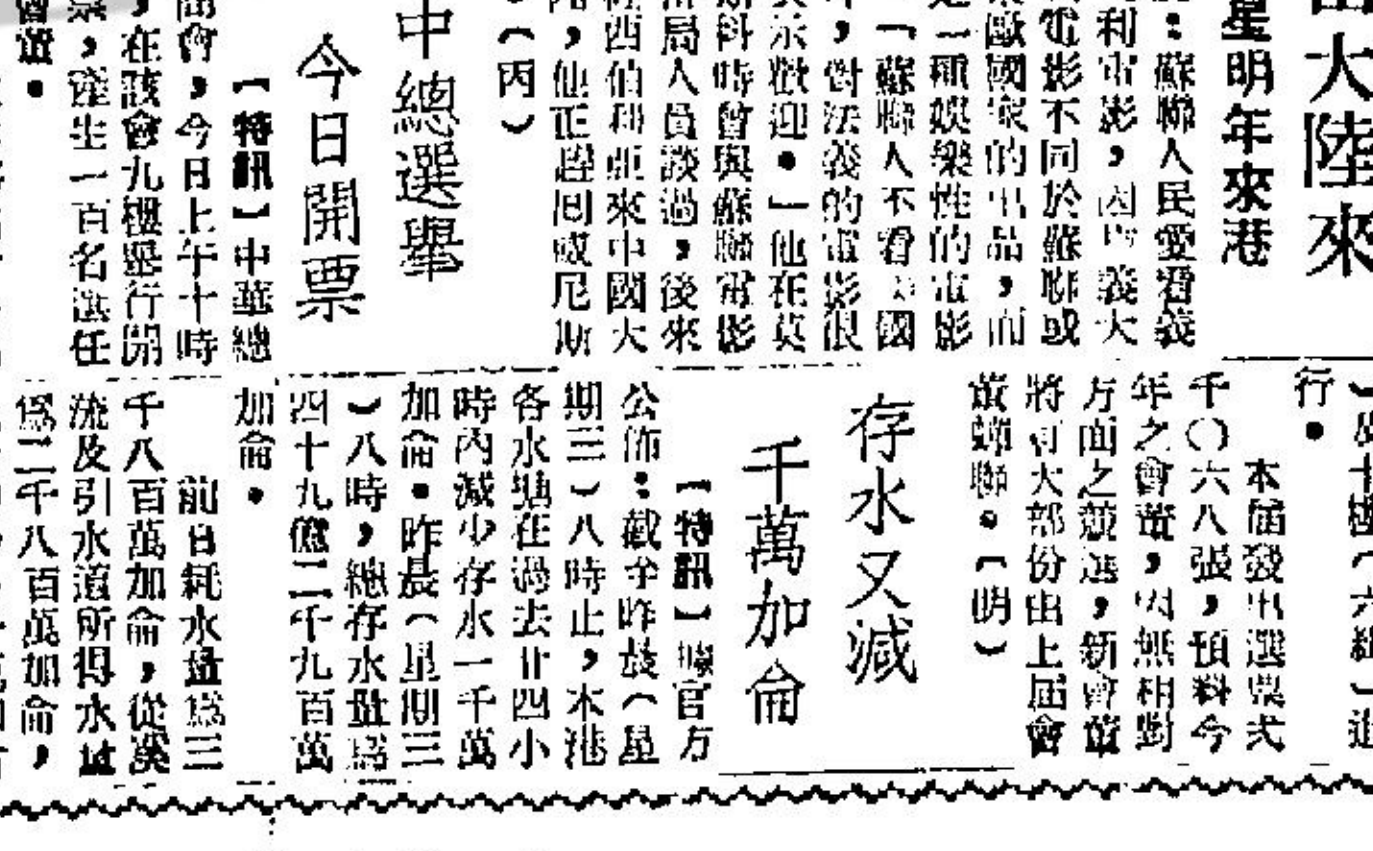 由大陸來
星明年來港
：蘇聯人民愛看義
利電影，因為義大
電影不同於蘇聯或
歐國家的出品，而
是一種娛樂性的電影
「蘇聯人不看
國
，對法義的電影很
表示歡迎。」他在莫
斯科時會與蘇聯電影
當局人員談過，後來
經西伯利亞來中國大
陸，他正趕回威尼斯
。（丙）
中總選舉
今日開票
【特訊】中華總
商會，今日上午十時
，在該會九樓舉行開
票，產生一百名選任
會董。
）及十國（六組）進
行。
本屆發出選票弍
千〇六八張，預料今
年之會董，因無相對
方面之競選，新會董
將有大部份由上屆會
董蟬聯。（明）
存水又減
千萬加侖
【特訊】據官方
公佈：截至昨晨（星
期三）八時止，本港
各水塘在過去廿四小
時內減少存水一千萬
加侖。昨晨（星期三
）八時，總存水量爲
四十九億二千九百萬
加侖。
前日耗水量爲三
千八百萬加侖，從溪
流及引水道所得水量
爲二千八百萬加侖，